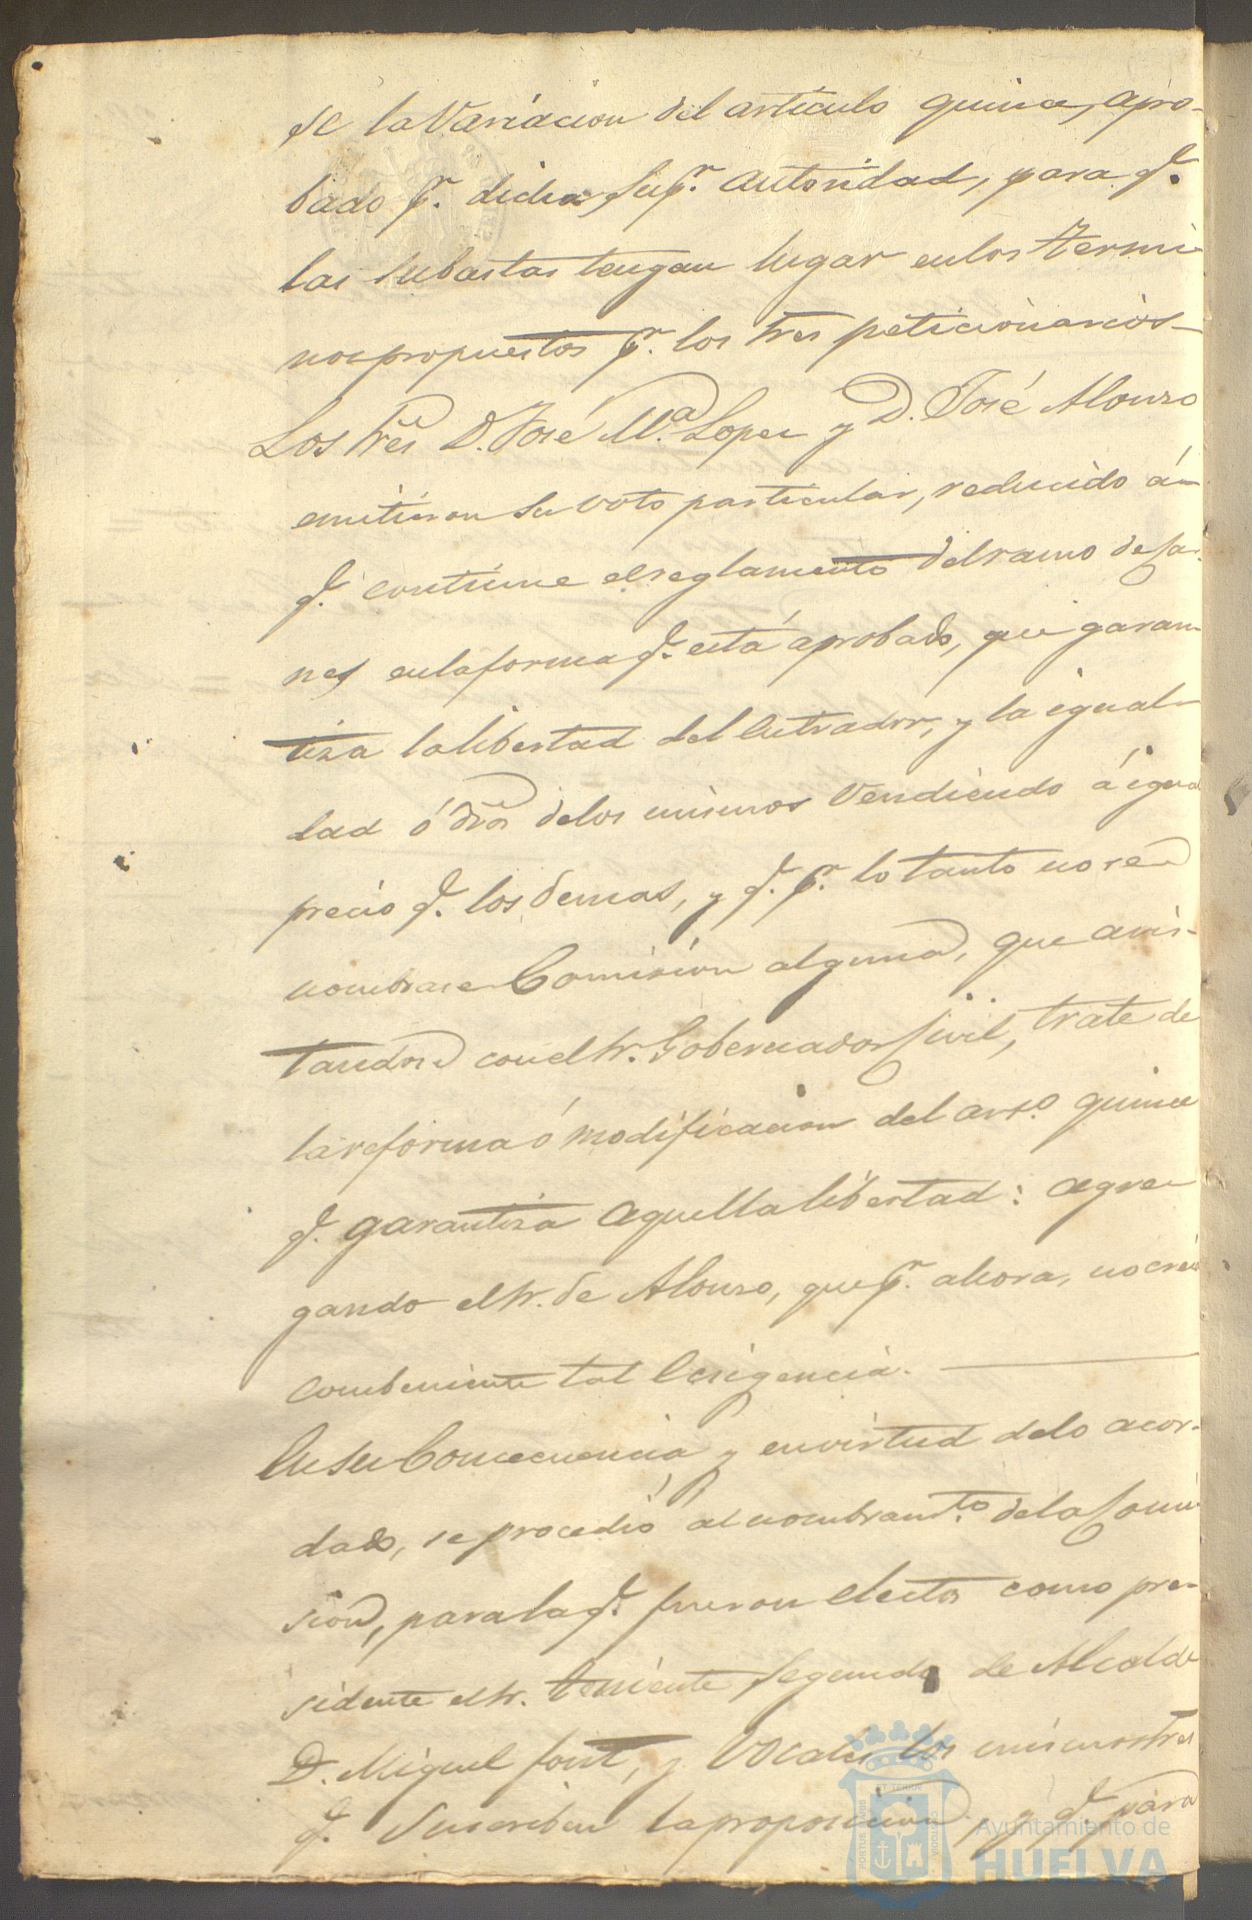 se la Variacion del articulo quince, apro-
bado pr. dicha Supr. autoridad, para q.
las subastas tengan lugar en los termi-
nos propuestos pr. los tres peticionarios-
Los Sres D. José Ma. Lopez y D. José Alonso
emitieron su voto particular, reducido á-
q. continue el reglamento del ramo de Car-
nes en la forma q. está aprobado, que garan-
tiza la libertad del entrador, y la igual-
dad ó dros de los mismos vendiendo á igual
precio q. los demas, y q. pr. lo tanto no se
nombrase Comisión alguna, que avis-
tandose con el Sr. Gobernador Civil, trate de
la reforma ó modificacion del arto. quince
q. garantiza aquella libertad: agre-
gando el Sr. de Alonso, que pr. ahora, no creia
combeniente talEcsigencia.
En su Concecuencia y en virtud de lo acor-
dado, se procedió al nombramto. de la Comi-
sion, para la q. fueron electos como pre-
sidente el Sr. teniente Segundo de Alcalde
D. Miguel Font, y vocales los mismos tres
q. Suscriben la proposicion, y q. para
Ayuntamiento de
HUELVA